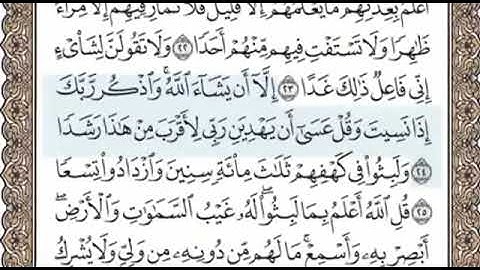 أَعْلَمُ بِعِدَّتِهِم مَّا يَعْلَمُهُمْ إِلَّا قَلِيلٌ فَلَا تُمَارِ فِيهِمْ إِلَّا مِرَآءً
ظَٰهِرًا وَلَا تَسْتَفْتِ فِيهِم مِّنْهُمْ أَحَدًا ٢٢ وَلَا تَقُولَنَّ لِشَا۟ىْءٍ
إِنِّى فَاعِلٌ ذَٰلِكَ غَدًا ٢٣ إِلَّآ أَن يَشَآءَ ٱللَّهُ وَٱذْكُر رَّبَّكَ
إِذَا نَسِيتَ وَقُلْ عَسَىٰٓ أَن يَهْدِيَنِ رَبِّى لِأَقْرَبَ مِنْ هَٰذَا رَشَدًا
٢٤ وَلَبِثُوا۟ فِى كَهْفِهِمْ ثَلَٰثَ مِا۟ئَةٍ سِنِينَ وَٱزْدَادُوا۟ تِسْعًا
٢٥ قُلِ ٱللَّهُ أَعْلَمُ بِمَا لَبِثُوا۟ لَهُۥ غَيْبُ ٱلسَّمَٰوَٰتِ وَٱلْأَرْضِ
أَبْصِرْ بِهِۦ وَأَسْمِعْ مَا لَهُم مِّن دُونِهِۦ مِن وَلِىٍّ وَلَا يُشْرِكُ